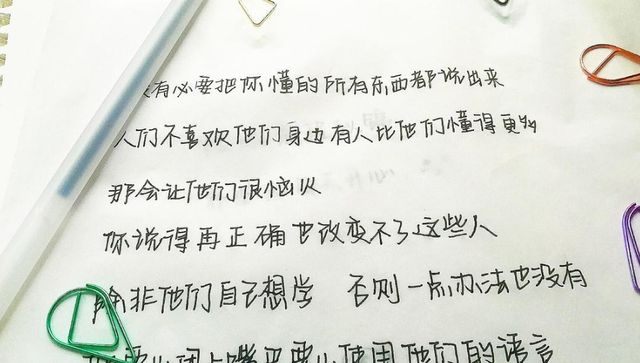 有必要把你懂的所有东西都说出来
人们不喜欢他们身边有人比他们懂得更多
那会让他们很恼火
你说得再正确也改变不了这些人
除非他们自己想学 否则一点办法也没有
要么闭上嘴巴要么使用他们的语言